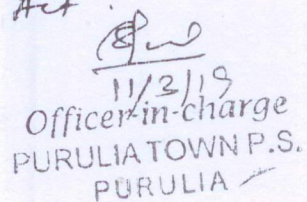 Act.
11/3/19
Officer-in-charge
PURULIA TOWN P.S.
PURULIA